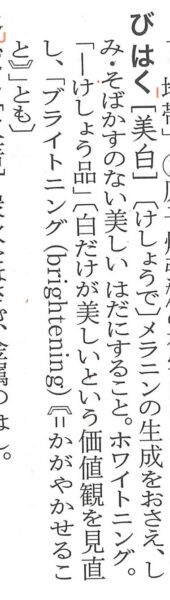 びはく[美白]〔けしょうで〕メラニンの生成をおさえ、し
み・そばかすのない美しいはだにすること。ホワイトニング。
「―けしょう品」〔白だけが美しいという価値観を見直
し、「ブライトニング(brightening)《=かがやかせるこ
と》」とも〕